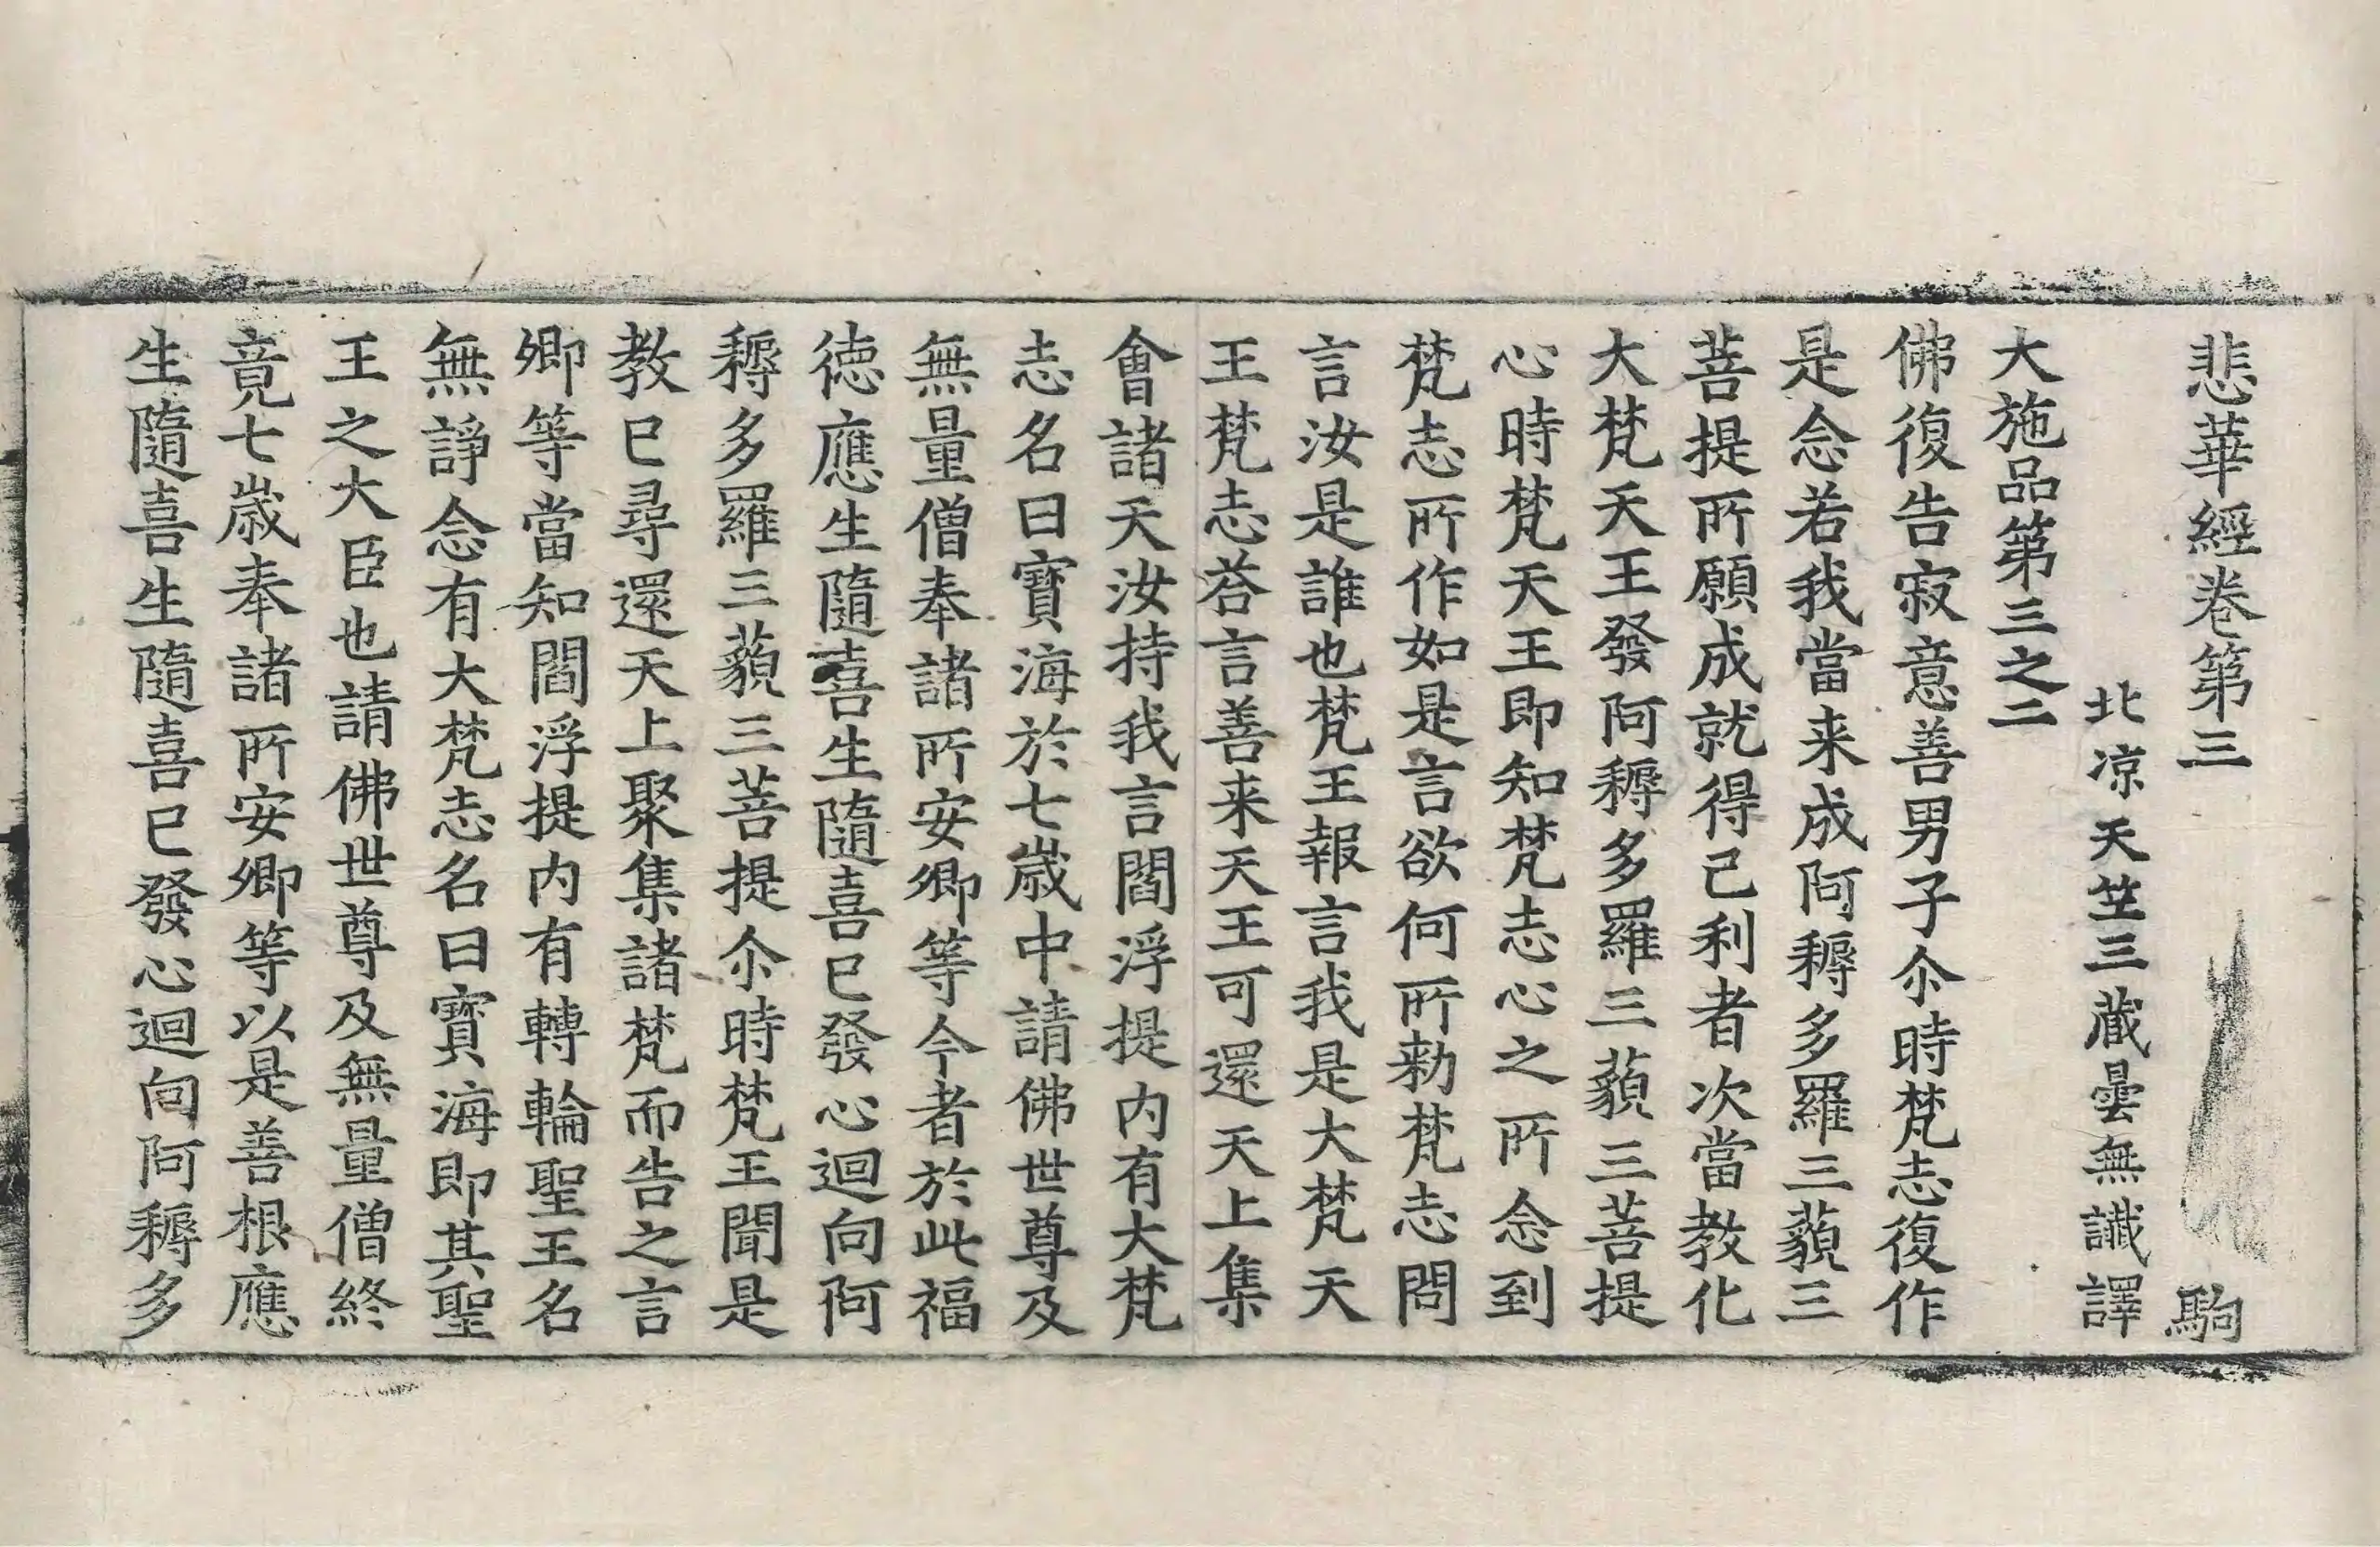 悲華經卷第三 駒
北凉天竺三藏曇無讖譯
大施品第三之二
佛復告寂意善男子尒時梵志復作
是念若我當来成阿耨多羅三藐三
菩提所願成就得己利者次當教化
大梵天王發阿耨多羅三藐三菩提
心時梵天王即知梵志心之所念到
梵志所作如是言欲何所勑梵志問
言汝是誰也梵王報言我是大梵天
王梵志荅言善来天王可還天上集
會諸天汝持我言閻浮提内有大梵
志名曰寶海於七歲中請佛世尊及
無量僧奉諸所安卿等今者於此福
德應生隨喜生隨喜已發心迴向阿
耨多羅三藐三菩提尒時梵王聞是
教已尋還天上聚集諸梵而告之言
卿等當知閻浮提内有轉輪聖王名
無諍念有大梵志名曰寶海即其聖
王之大臣也請佛世尊及無量僧終
竟七歲奉諸所安卿等以是善根應
生隨喜生隨喜已發心迴向阿耨多